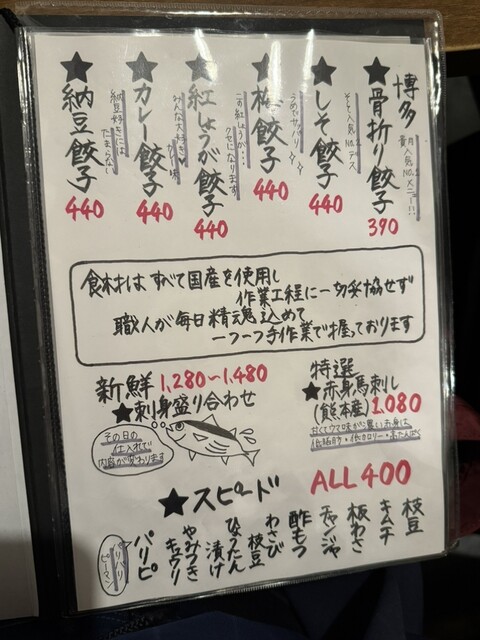 博多
★骨折り餃子
人気No.1メニュー!!
390
★しそ餃子
人気No.2デス
440
★梅餃子
うめぇサッパリ
440
★紅しょうが餃子
この紅しょうが…
クセになります
440
★カレー餃子
みんな大好き♥
カレー味
440
★納豆餃子
納豆好きには
たまらない
440
食材はすべて国産を使用し
作業工程に一切妥協せず
職人が毎日精魂込めて
一つ一つ手作業で握っております
新鮮 1,280〜1,480
★刺身盛り合わせ
その日の
仕入れで
内容が変わります
特選
★赤身馬刺し
(熊本産) 1,080
低脂肪・低カロリー・高たんぱく
★スピード ALL 400
枝豆
キムチ
板わさ
チャンジャ
酢もつ
わさび
枝豆
ひょうたん
漬け
やみつき
キュウリ
パリピ
パリパリ
ピーマン